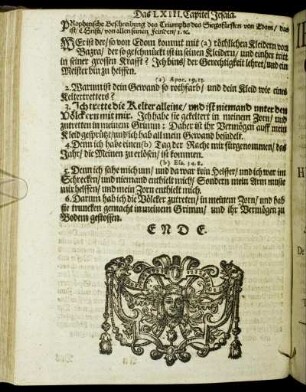 Das LXIII. Capitel Jesaia.
Prophetische Beschreibung des Triumphs des Siegesfürsten von Edom, das
ist Christi, von allen seinen Feinden/ ꝛc.
Wer ist der/ so von Edom kommt mit (a) röthlichen Kleidern von
Bazra/ der so geschmückt ist in seinen Kleidern/ und einher tritt
in seiner grossen Krafft? Ich bins/ der Gerechtigkeit lehret/ und ein
Meister bin zu helffen.
(a) Apoc. 19.13.
2. Warum ist dein Gewand so rothfarb/ und dein Kleid wie eines
Keltertretters?
3. Ich trette die Kelter alleine/ und ist niemand unter den
Völckern mit mir. Ich habe sie gekeltert in meinem Zorn/ und
zutretten in meinem Grimm: Daher ist ihr Vermögen auff mein
Kleid gesprützt/ und ich hab all mein Gewand besudelt.
4. Denn ich habe einen (b) Tag der Rache mir fürgenommen/ das
Jahr/ die Meinen zu erlösen/ ist kommen.
(b) Esa. 34.8.
5. Denn ich sahe mich um/ und da war kein Helffer/ und ich war im
Schrecken/ und niemand enthielt mich/ Sondern mein Arm muste
mir helffen/ und mein Zorn enthielt mich.
6. Darum hab ich die Völcker zutreten/ in meinem Zorn/ und hab
sie truncken gemacht in meinem Grimm/ und ihr Vermögen zu
Boden gestossen.
E N D E.